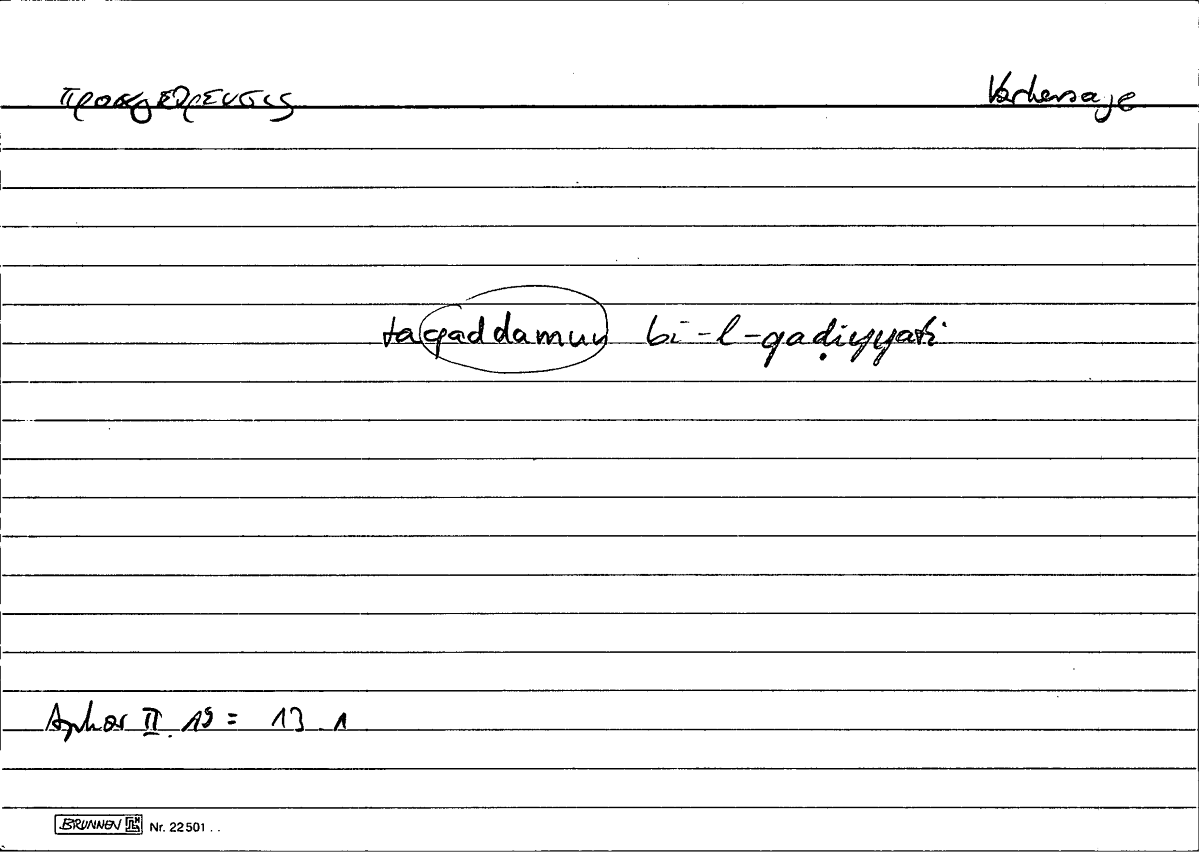 προαγόρευσις Vorhersage
taqaddamun bi-l-qaḍiyyati
Aphor II. 19 = 13.1
BRUNNEN Nr. 22501 . .